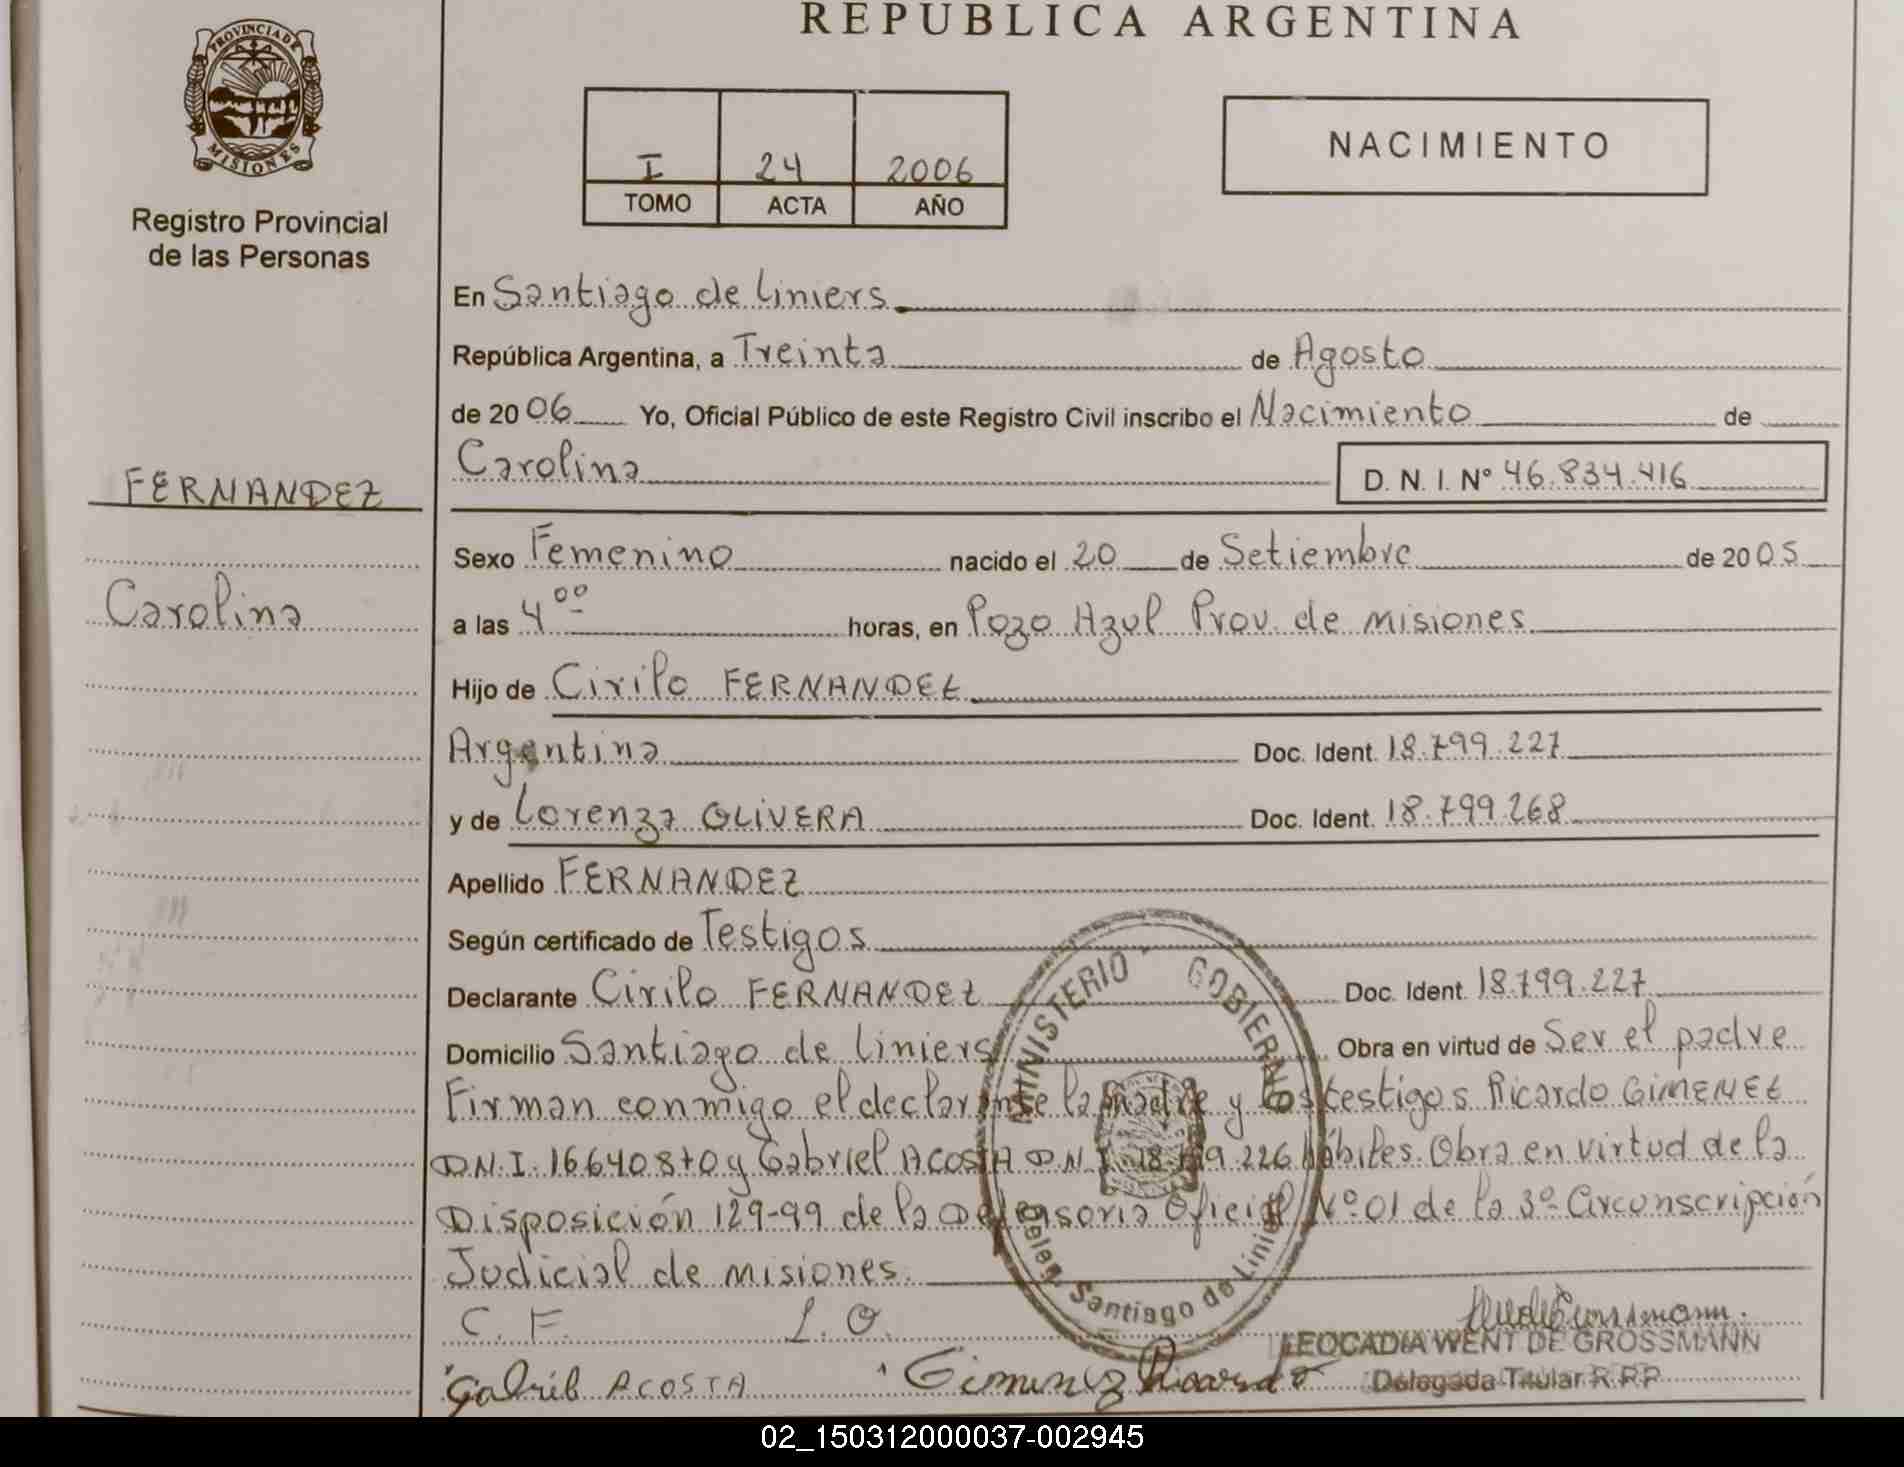 REPUBLICA ARGENTINA
PROVINCIA DE
MISIONES
Registro Provincial
de las Personas
I 24 2006
TOMO ACTA AÑO
NACIMIENTO
En Santiago de Liniers
República Argentina, a Treinta de Agosto
de 2006 Yo, Oficial Público de este Registro Civil inscribo el Nacimiento de
Carolina D. N. I. Nº 46.834.416
FERNANDEZ
Carolina
Sexo Femenino nacido el 20 de Setiembre de 2005
a las 4 00 horas, en Pozo Azul Prov. de Misiones
Hijo de Cirilo FERNANDEZ
Argentina Doc. Ident. 18.799.227
y de Lorenza OLIVERA Doc. Ident. 18.799.268
Apellido FERNANDEZ
Según certificado de Testigos
Declarante Cirilo FERNANDEZ Doc. Ident. 18.799.227
Domicilio Santiago de Liniers Obra en virtud de Ser el padre
Firman conmigo el declarante la madre y los testigos Ricardo GIMENEZ
D.N.I. 16640870 y Gabriel ACOSTA D.N.I. 18.799.226 hábiles. Obra en virtud de la
Disposición 129-99 de la Defensoria Oficial Nº 01 de la 3º Circunscripción
Judicial de misiones.
MINISTERIO GOBIERNO
Deleg. Santiago de Liniers
C. F. L. O.
LEOCADIA WENT DE GROSSMANN
Delegada Titular R.P.P
Gabriel ACOSTA Gimenez Ricardo
02_150312000037-002945